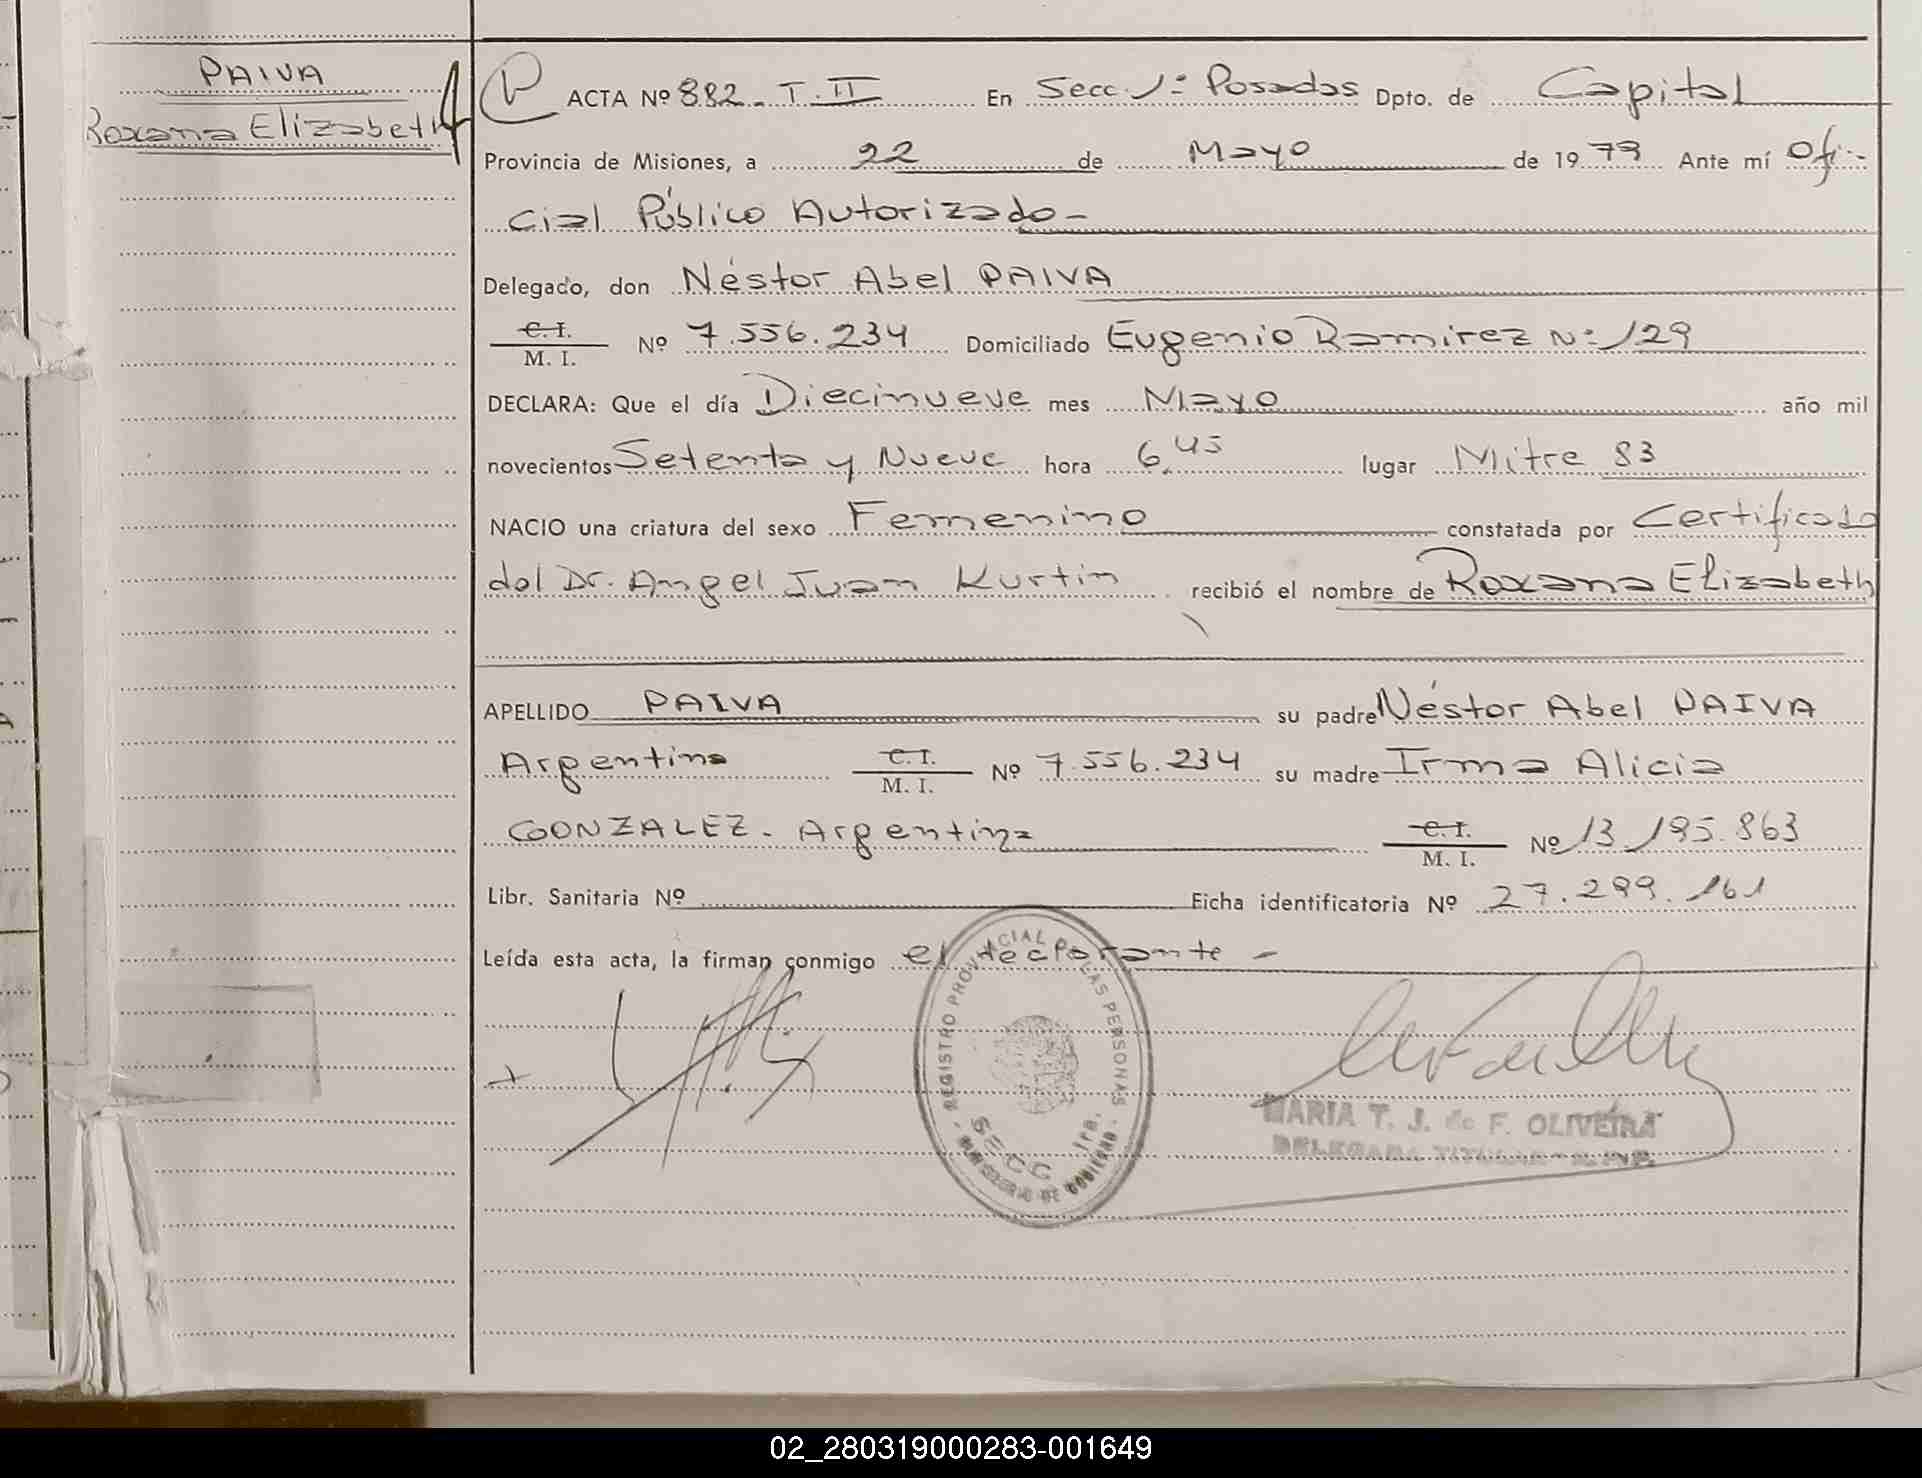 PAIVA
Roxana Elizabeth
ACTA Nº 882 - T. II En Secc 1ª Posadas Dpto. de Capital
Provincia de Misiones, a 22 de Mayo de 1979 Ante mí Ofi-
cial Público Autorizado -
Delegado, don Néstor Abel PAIVA
C. I.
M. I. Nº 7.556.234 Domiciliado Eugenio Ramirez Nº 129
DECLARA: Que el día Diecinueve mes Mayo año mil
novecientos Setenta y Nueve hora 6,45 lugar Mitre 83
NACIO una criatura del sexo Femenino constatada por Certificado
del Dr. Angel Juan Kurtin recibió el nombre de Roxana Elizabeth
APELLIDO PAIVA su padre Néstor Abel PAIVA
Argentino C. I. / M. I. Nº 7.556.234 su madre Irma Alicia
GONZALEZ - Argentina C. I. / M. I. Nº 13.195.863
Libr. Sanitaria Nº Ficha identificatoria Nº 27.299.161
Leída esta acta, la firman conmigo el declarante -
REGISTRO PROVINCIAL DE LAS PERSONAS
SECC 1ra.
- MINISTERIO DE GOBIERNO -
MARIA T. J. de F. OLIVEIRA
DELEGADA TITULAR - R. P. P.
02_280319000283-001649